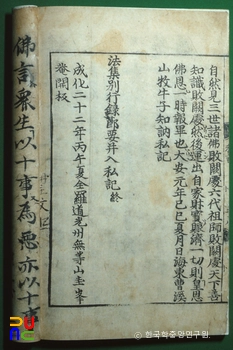 自然見三世諸佛敗闕處六代祖師敗闕處天下善
知識敗闕處然後運出自家財寶賑濟一切則皇恩
佛恩一時報畢也大安元年己巳夏月日海東曹溪
山牧牛子知訥私記
法集別行錄節要并入私記終
成化二十二年丙午夏全羅道光州無等山圭峯
菴開板
佛言衆生以十事為惡亦以十事
ⓒ 한국학중앙연구원